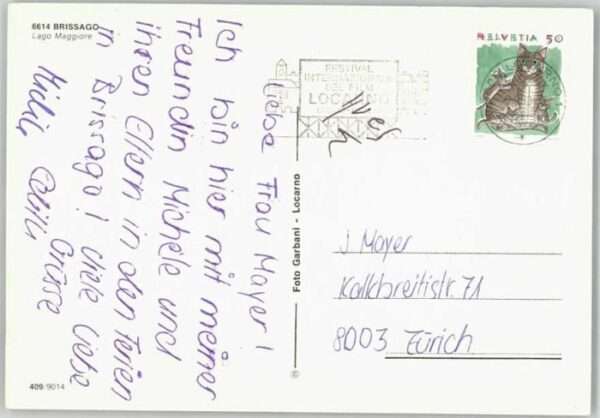 6614 BRISSAGO
Lago Maggiore
Liebe Frau Mayer!
Ich bin hier mit meiner
Freundin Michèle und
ihren Eltern in den Ferien
in Brissago! Viele liebe
Grüsse
HELVETIA 50
FESTIVAL
INTERNAZIONALE
DEL FILM
LOCARNO
Foto Garbani - Locarno
©
J Mayer
Kalkbreitistr. 71
8003 Zürich
409/9014